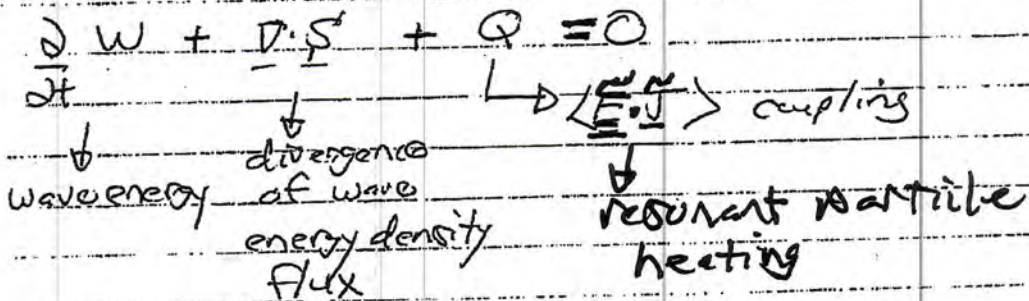 ∂/∂t W + ∇·S + Q = 0
↳ <Ẽ·J̃> coupling
↓ ↓ ↓
wave energy
divergence
of wave
energy density
flux
resonant particle
heating